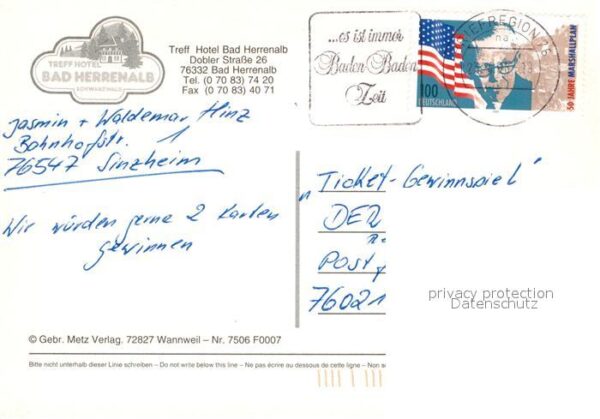 TREFF HOTEL
BAD HERRENALB
SCHWARZWALD
Treff Hotel Bad Herrenalb
Dobler Straße 26
76332 Bad Herrenalb
Tel. (0 70 83) 74 20
Fax (0 70 83) 40 71
...es ist immer
Baden-Baden
Zeit
BRIEFREGION
100
DEUTSCHLAND
50 JAHRE MARSHALLPLAN
Jasmin + Waldemar Hinz
Bahnhofstr. 1
76547 Sinzheim
Wir würden gerne 2 Karten
gewinnen
"Ticket-Gewinnspiel"
DER
Post
76021
privacy protection
Datenschutz
© Gebr. Metz Verlag. 72827 Wannweil – Nr. 7506 F0007
Bitte nicht unterhalb dieser Linie schreiben – Do not write below this line – Ne pas écrire au dessous de cette ligne – Non s